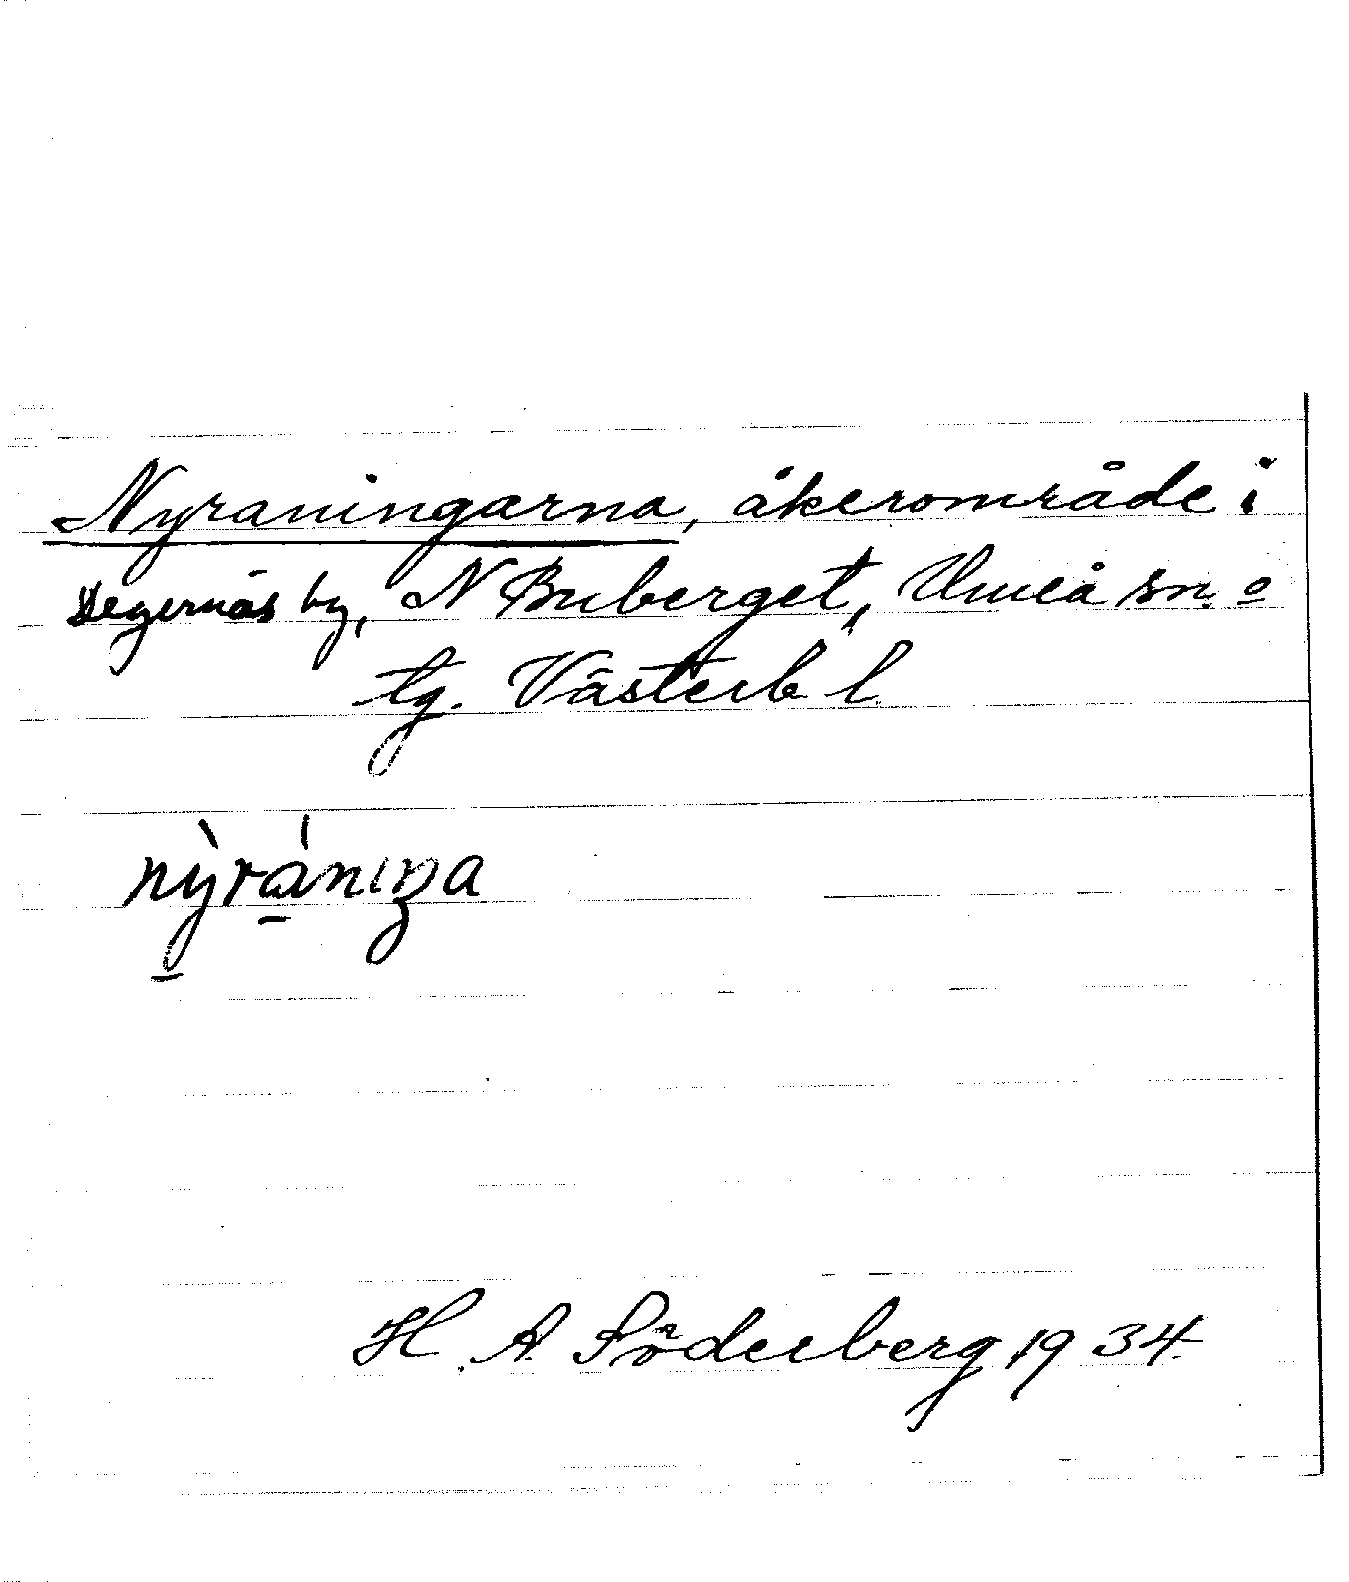 Nyraningarna, åkerområde i
Degernäs by, N Buberget, Umeå sn. o
tg. Västerb l.
nỳ̠rá̠niŋa
H. A. Söderberg 1934.